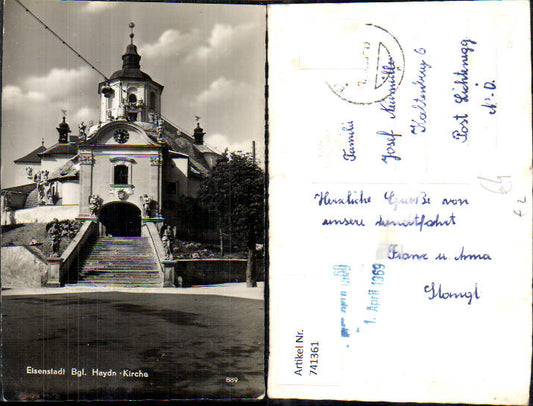 Eisenstadt Bgl. Haydn-Kirche
889
Familie
Josef
Kaltenberg 6
Post Lichtenegg
N.Ö.
Herzliche Grüße von
unsere
Franz u. Anna
Stangl
1. April 1969
Artikel Nr.
741361